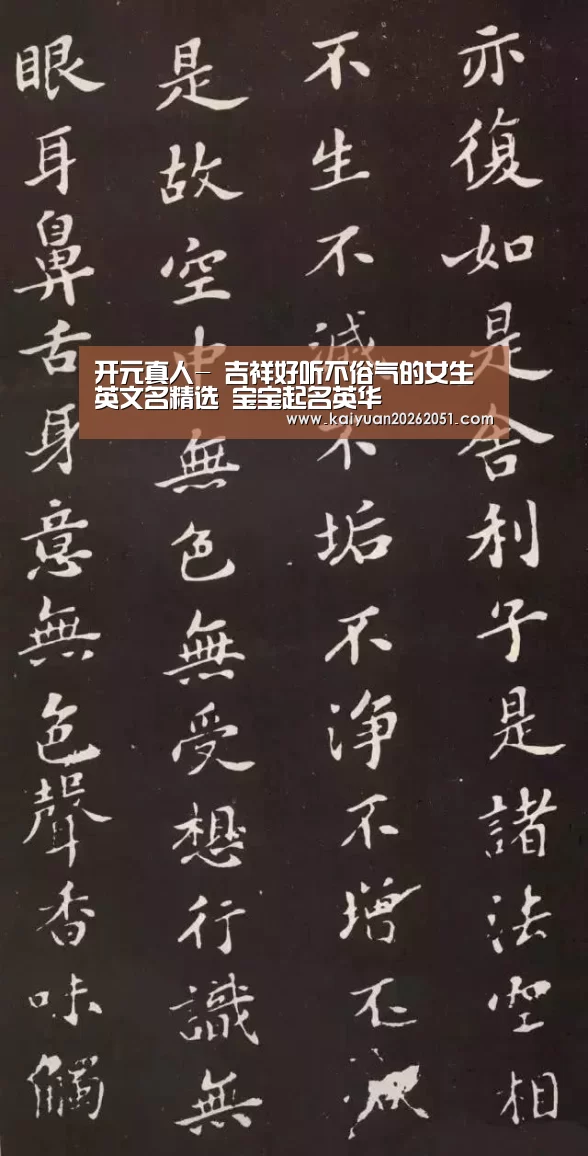 亦復如是舍利子是諸法空相
不生不滅不垢不淨不增不減
是故空中無色無受想行識無
眼耳鼻舌身意無色聲香味觸
开元真人- 吉祥好听不俗气的女生
英文名精选 宝宝起名英华
www.kaiyuan20262051.com